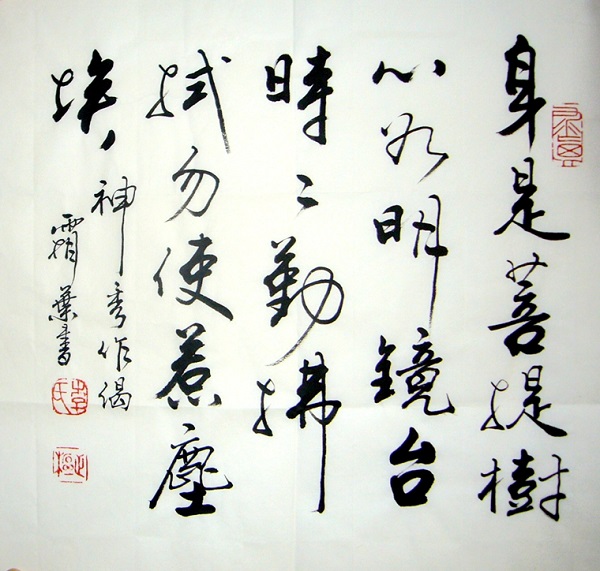 身是菩提樹
心如明鏡台
時〻勤拂
拭勿使惹塵
埃
神秀作偈
霜葉書